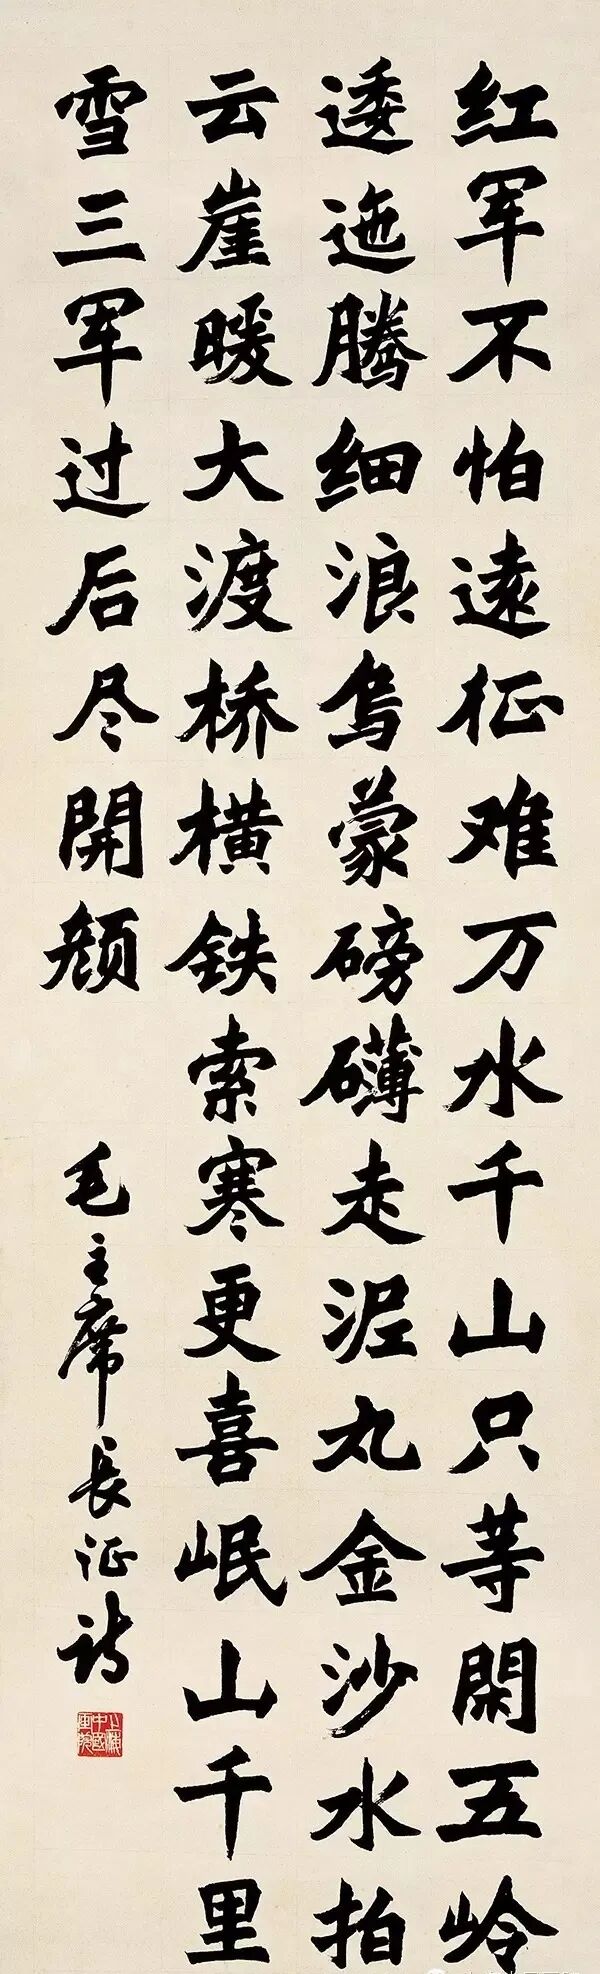 红军不怕遠征难万水千山只等閑五岭
逶迤腾细浪乌蒙磅礴走泥丸金沙水拍
云崖暖大渡桥横铁索寒更喜岷山千里
雪三军过后尽開颜
毛主席长征诗
上海中國画院